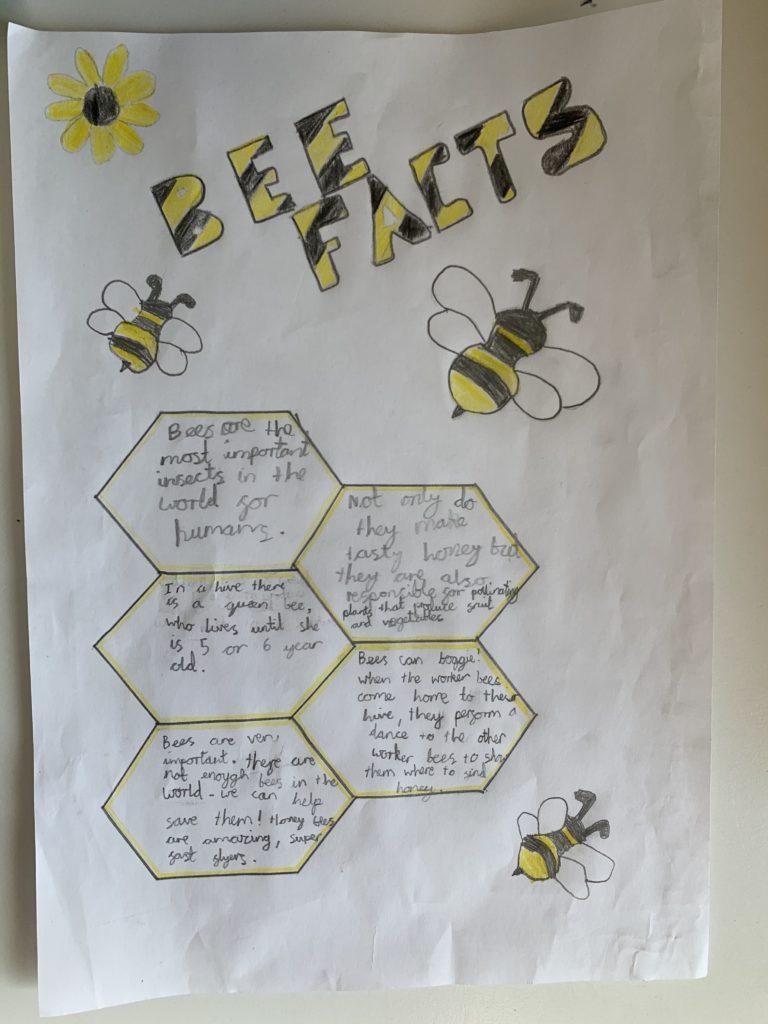 BEE
FACTS
Bees are the
most important
insects in the
world for
humans.
Not only do
they make
tasty honey but
they are also
responsible for pollinating
plants that produce fruit
and vegetables
In a hive there
is a queen bee,
who lives until she
is 5 or 6 year
old.
Bees can boggie!
When the worker bees
come home to their
hive, they perform a
dance to the other
worker bees to show
them where to find
honey.
Bees are very
important. there are
not enough bees in the
world - we can help
save them! Honey bees
are amazing, super
fast flyers.